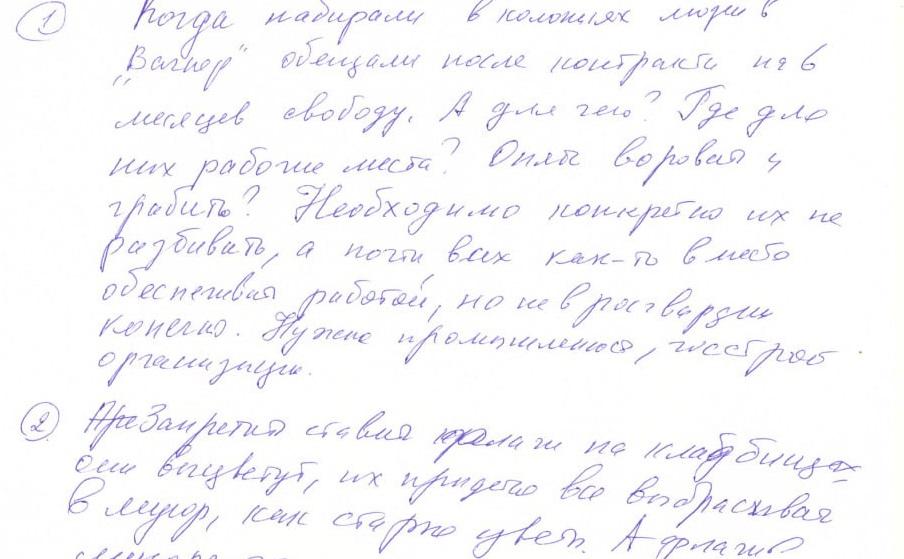 ① Когда набирали в колониях людей в
„Вагнер" обещали после контракта на 6
месяцев свободу. А для чего? Где для
них рабочие места? Опять воровать и
грабить? Необходимо конкретно их не
разбивать, а почти всех как-то вместо
обеспечивать работой, но не в росгвардии
конечно. Нужна промышленность,
организации.
② Запретить ставить флаги на кладбищах
они выцветут, их придется все выбрасывать
в мусор, как старые цветы. А флаги